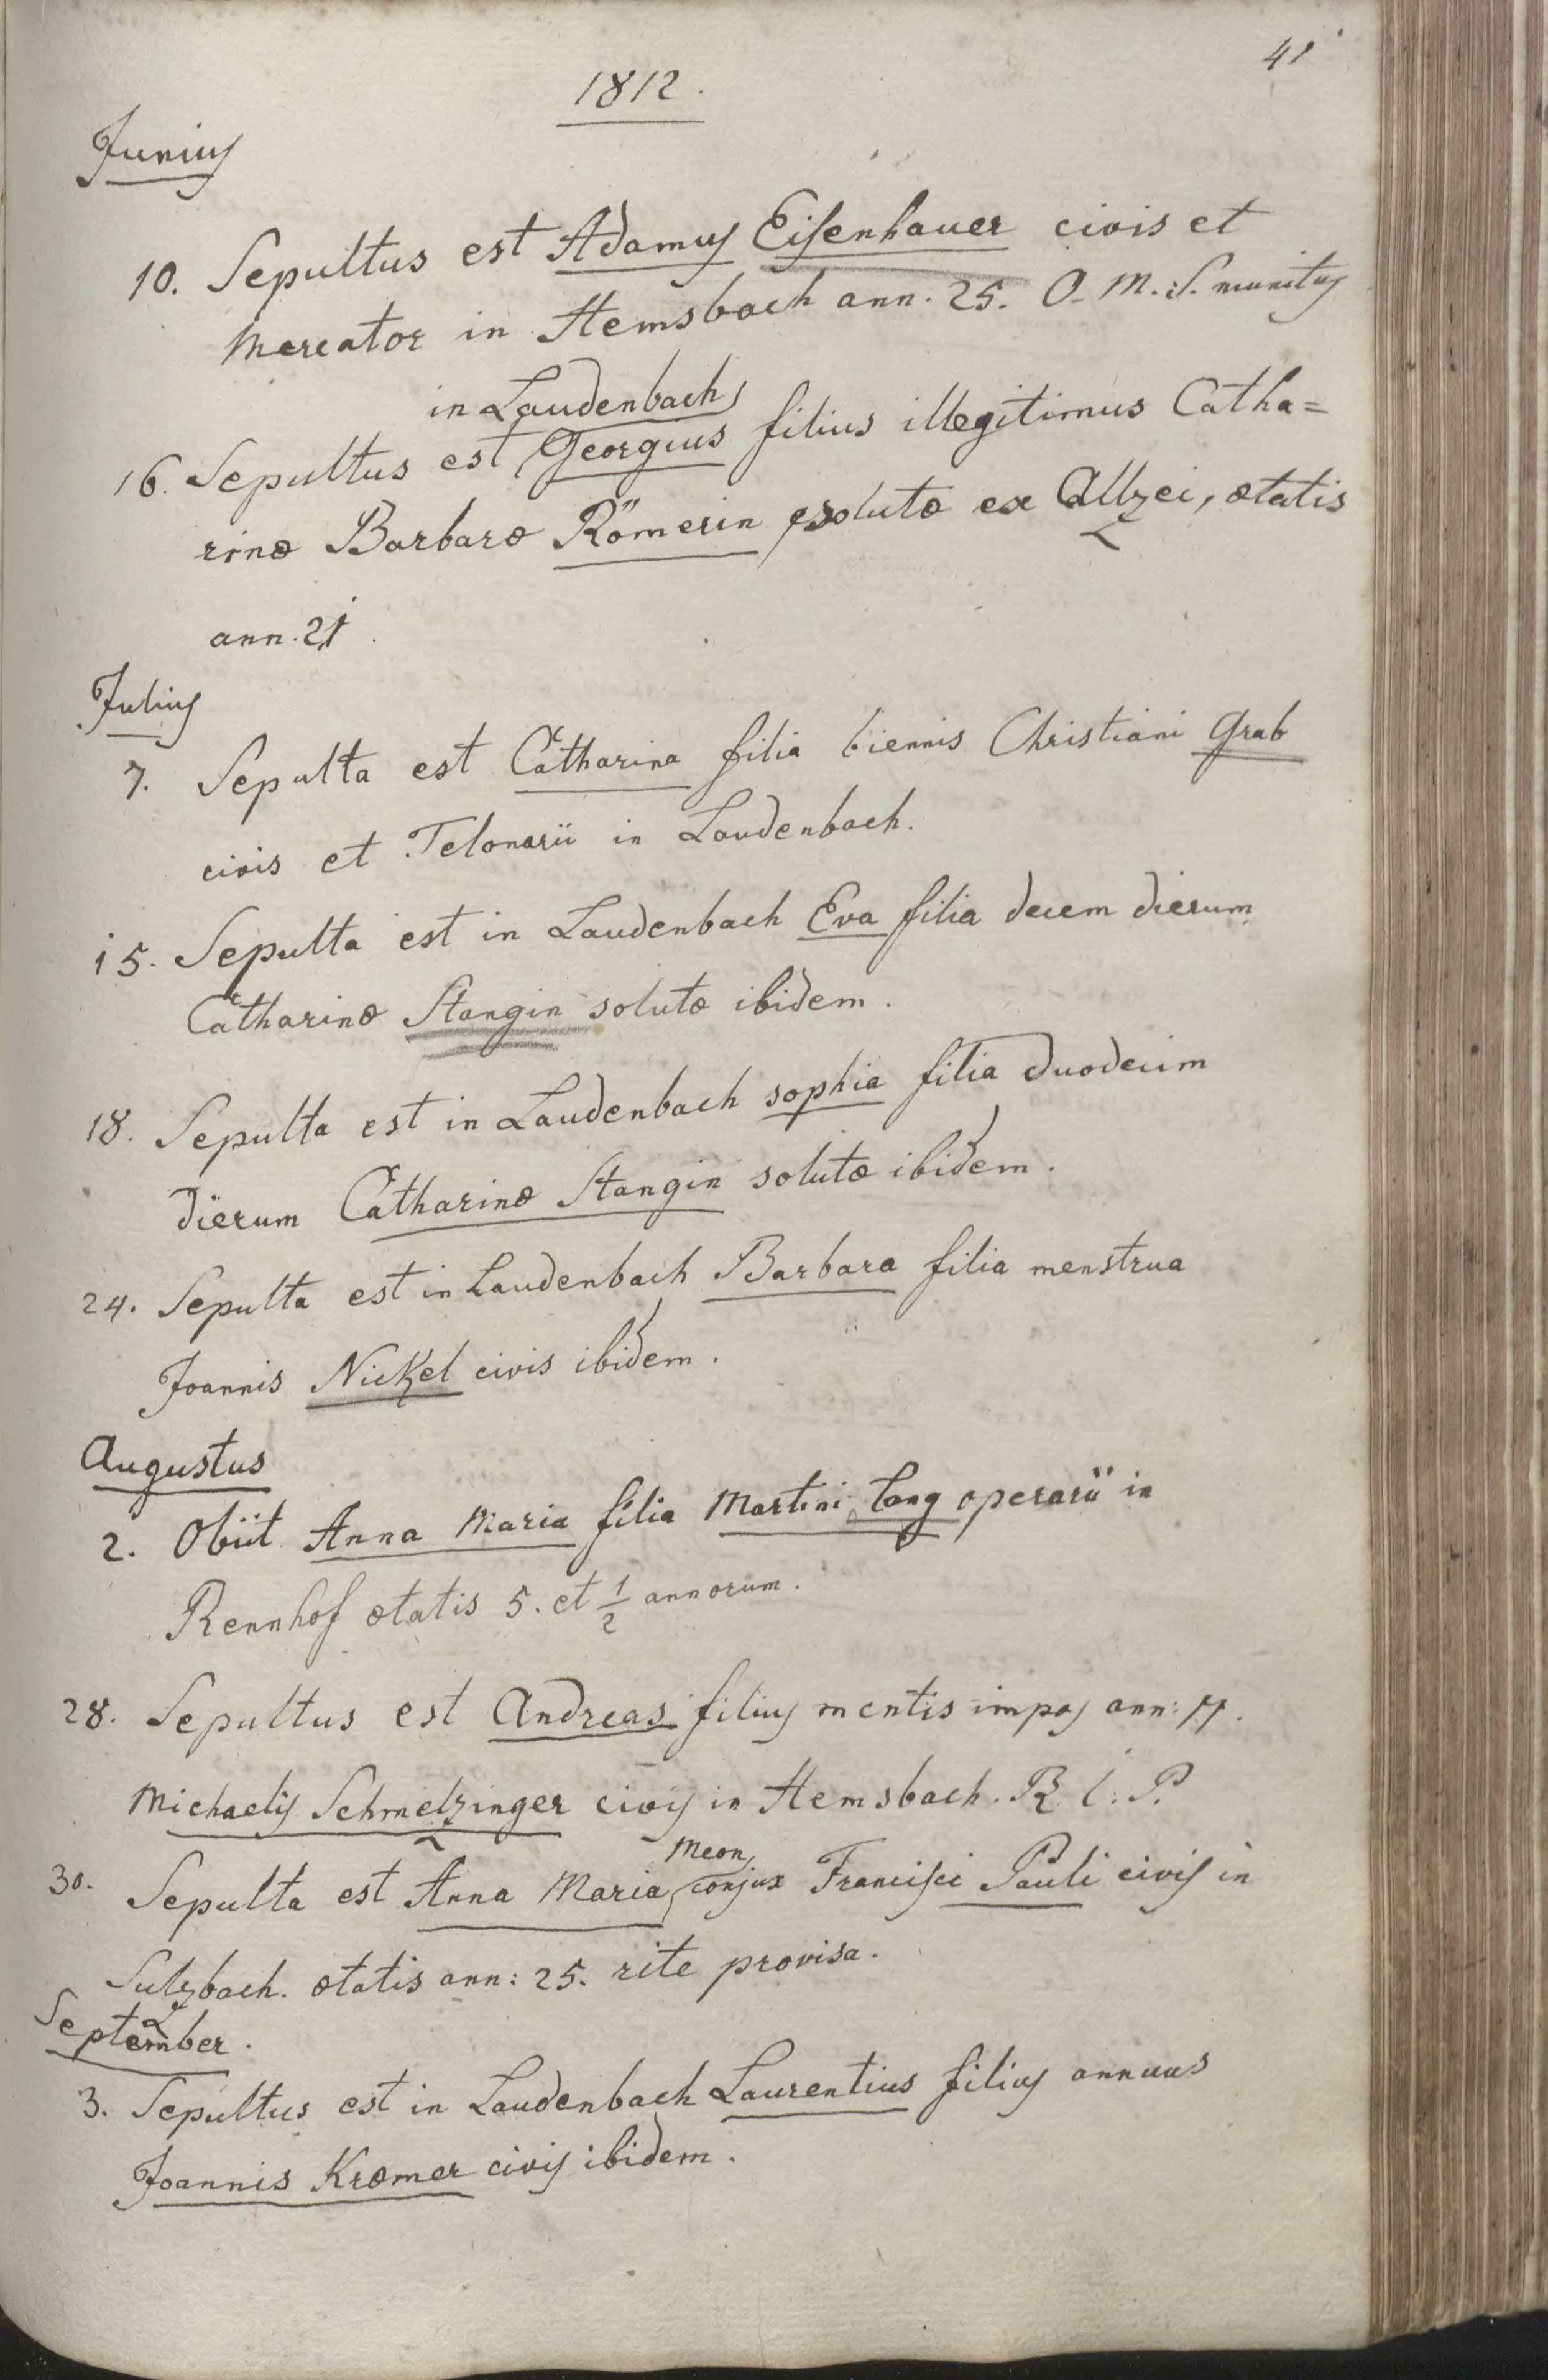 41
1812.
Junius
10. Sepultus est Adamus Eisenhauer civis et
Mercator in Hemsbach ann. 25. O. M. S. munitus
in Laudenbach
16. Sepultus est Georgius filius illegitimus Catha=
rinæ Barbaræ Römerin solutæ ex Allzei, ætatis
ann. 21.
Julius
7. Sepulta est Catharina filia biennis Christiani Grab
civis et Telonarii in Laudenbach.
15. Sepulta est in Laudenbach Eva filia decem dierum
Catharinæ Stangin solutæ ibidem.
18. Sepulta est in Laudenbach Sophia filia duodecim
dierum Catharinæ Stangin solutæ ibidem.
24. Sepulta est in Laudenbach Barbara filia menstrua
Joannis Nickel civis ibidem.
Augustus
2. Obiit Anna Maria filia Martini Lang operarii in
Rennhof ætatis 5. et 1/2 annorum.
28. Sepultus est Andreas filius mentis impos ann:
Michaelis Schmelzinger civis in Hemsbach. R. I. P.
30. Sepulta est Anna Maria Meon conjux Francisci Pauli civis in
Sulzbach. ætatis ann: 25. rite provisa.
September.
3. Sepultus est in Laudenbach Laurentius filius annuus
Joannis Kræmer civis ibidem.